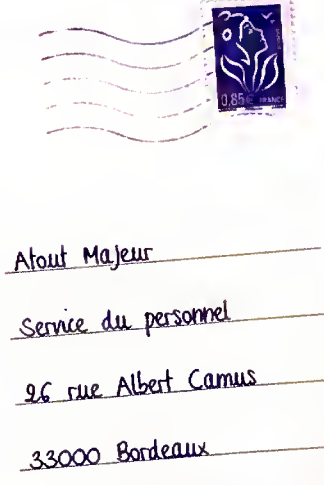 0,85€ FRANCE
Atout Majeur
Service du personnel
26 rue Albert Camus
33000 Bordeaux